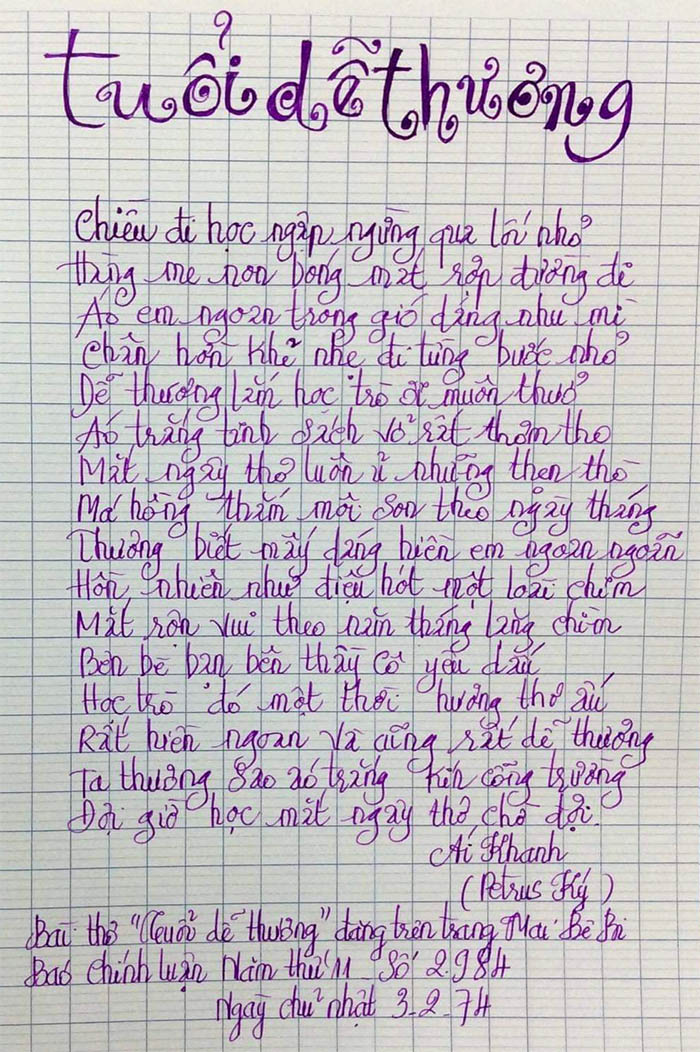 tuổi dễ thương
Chiều đi học ngập ngừng qua lối nhỏ
Hàng me non bóng mát rợp đường đi
Áo em ngoan trong gió dáng nhu mì
Chân hồn khẽ nhẹ đi từng bước nhỏ
Dễ thương lắm học trò ơi muôn thuở
Áo trắng tinh sách vở rất thơm tho
Mắt ngây thơ luôn ủ những thẹn thò
Má hồng thắm môi son theo ngày tháng
Thương biết mấy dáng hiền em ngoan ngoãn
Hồn nhiên như điệu hót một loài chim
Mắt rộn vui theo năm tháng lặng chìm
Bên bè bạn bên thầy cô yêu dấu
Học trò đó một thời hương thơ ấu
Rất hiền ngoan và cũng rất dễ thương
Ta thương sao áo trắng kín cổng trường
Đợi giờ học mắt ngây thơ chờ đợi.
Ái Khanh
(Petrus Ký)
Bài thơ "Tuổi dễ thương" đăng trên trang Mai Bê Bi
Báo Chính luận Năm thứ 11 _ Số 2.984
Ngày chủ nhật 3_2_74